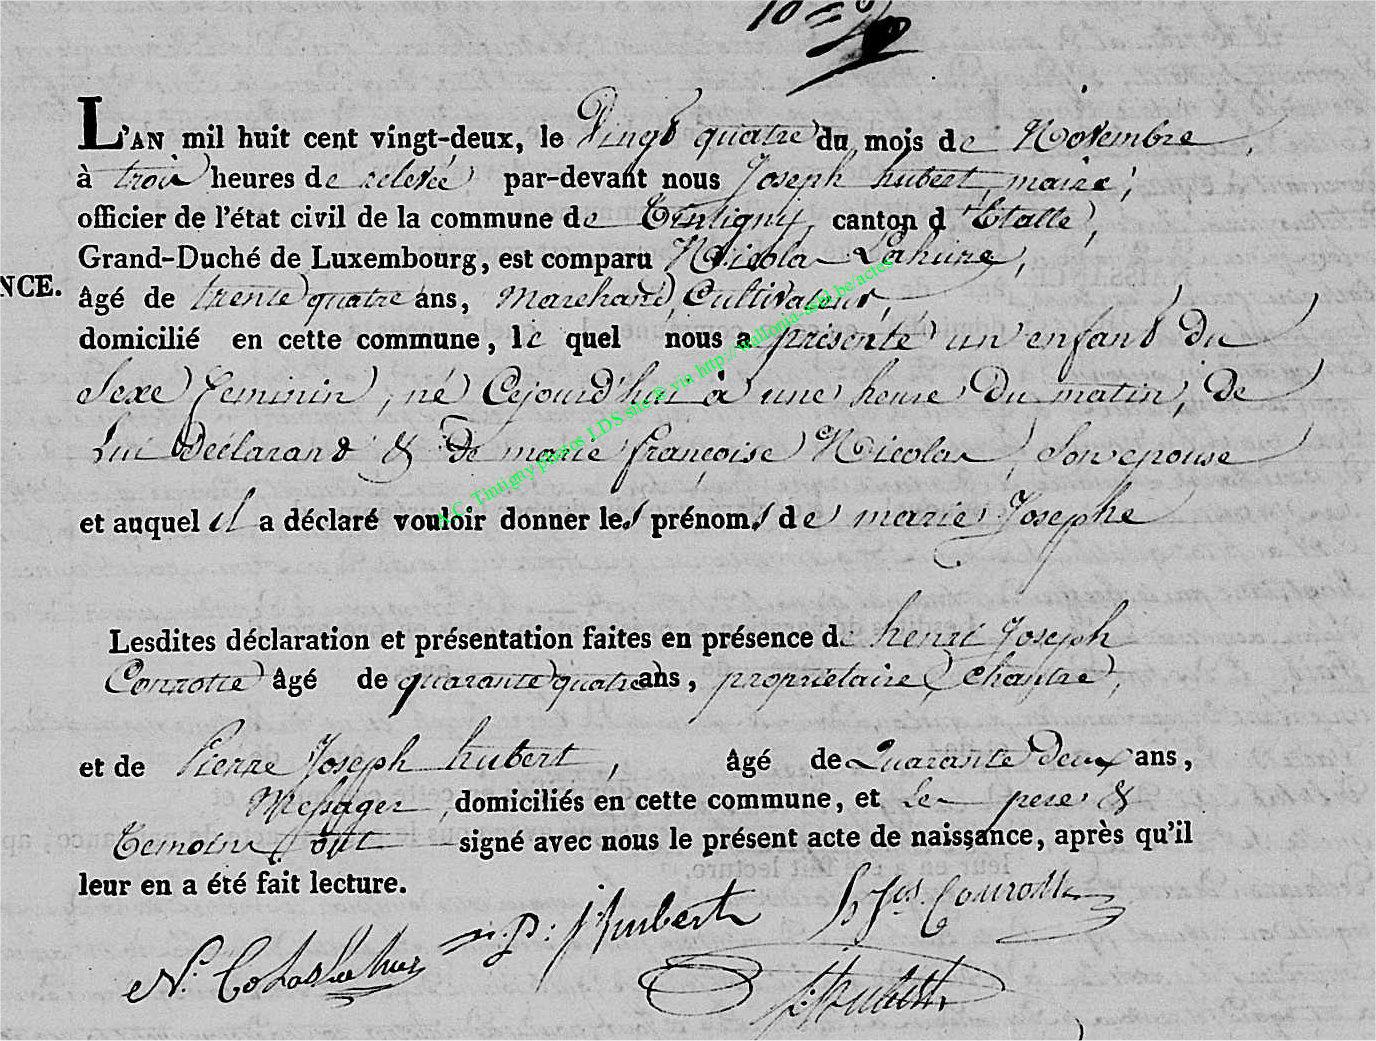 L'AN mil huit cent vingt-deux, le Vingt quatre du mois de Novembre,
à trois heures de relevée par-devant nous Joseph hubert, maire,
officier de l'état civil de la commune de Tintigny, canton d'Etalle,
Grand-Duché de Luxembourg, est comparu Nicolas Lahure,
NCE. âgé de trente quatre ans, Marchand, Cultivateur,
domicilié en cette commune, le quel nous a présenté un enfant du
Sexe feminin, né Cejourd'hui à une heure Du matin, De
Lui Déclarant & De marie françoise Nicolas, Son epouse
et auquel il a déclaré vouloir donner les prénoms de marie Josephe
Lesdites déclaration et présentation faites en présence de henri Joseph
Conrotte âgé de quarante quatre ans, propriétaire, Chantre,
et de Pierre Joseph hubert, âgé de Quarante Deux ans,
Messager, domiciliés en cette commune, et Le pere &
Temoins ont signé avec nous le présent acte de naissance, après qu'il
leur en a été fait lecture.
P: J hubert h Jos. Conrotte
N: Colas Lahure
J: hubert
A.C. Tintigny photos LDS site & via http://wallonia-asbl.be/actes